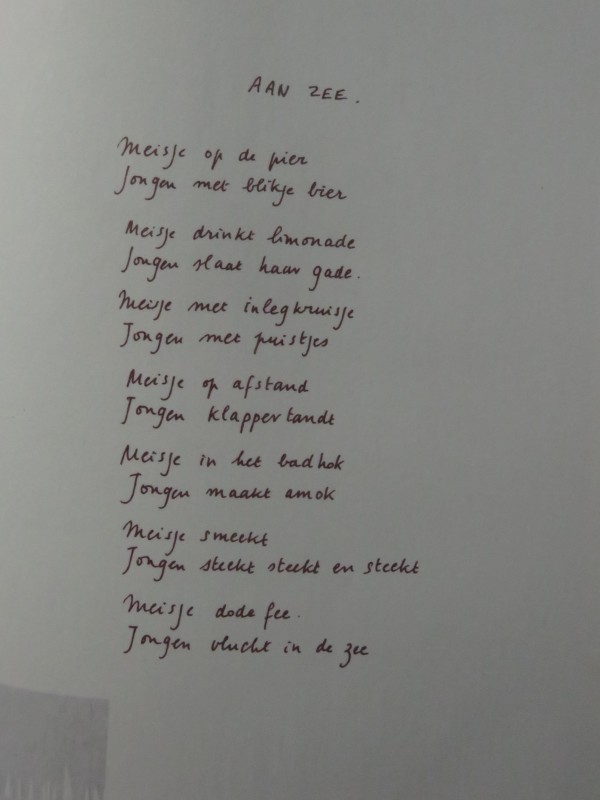 AAN ZEE.
Meisje op de pier
Jongen met blikje bier
Meisje drinkt limonade
Jongen slaat haar gade.
Meisje met inlegkruisje
Jongen met puistjes
Meisje op afstand
Jongen klappertandt
Meisje in het badhok
Jongen maakt amok
Meisje smeekt
Jongen steekt steekt en steekt
Meisje dode fee.
Jongen vlucht in de zee